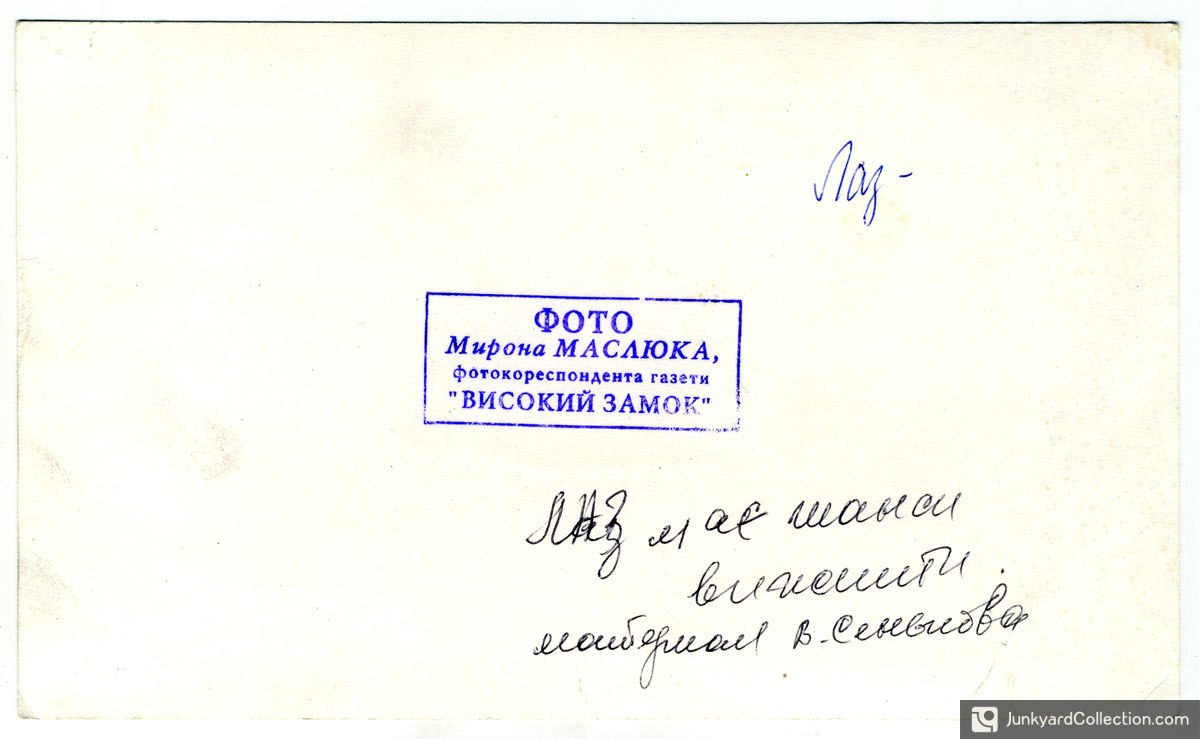 Лаз -
ФОТО
Мирона МАСЛЮКА,
фотокореспондента газети
"ВИСОКИЙ ЗАМОК"
ЛАЗ має шанси
матеріал В.
JunkyardCollection.com